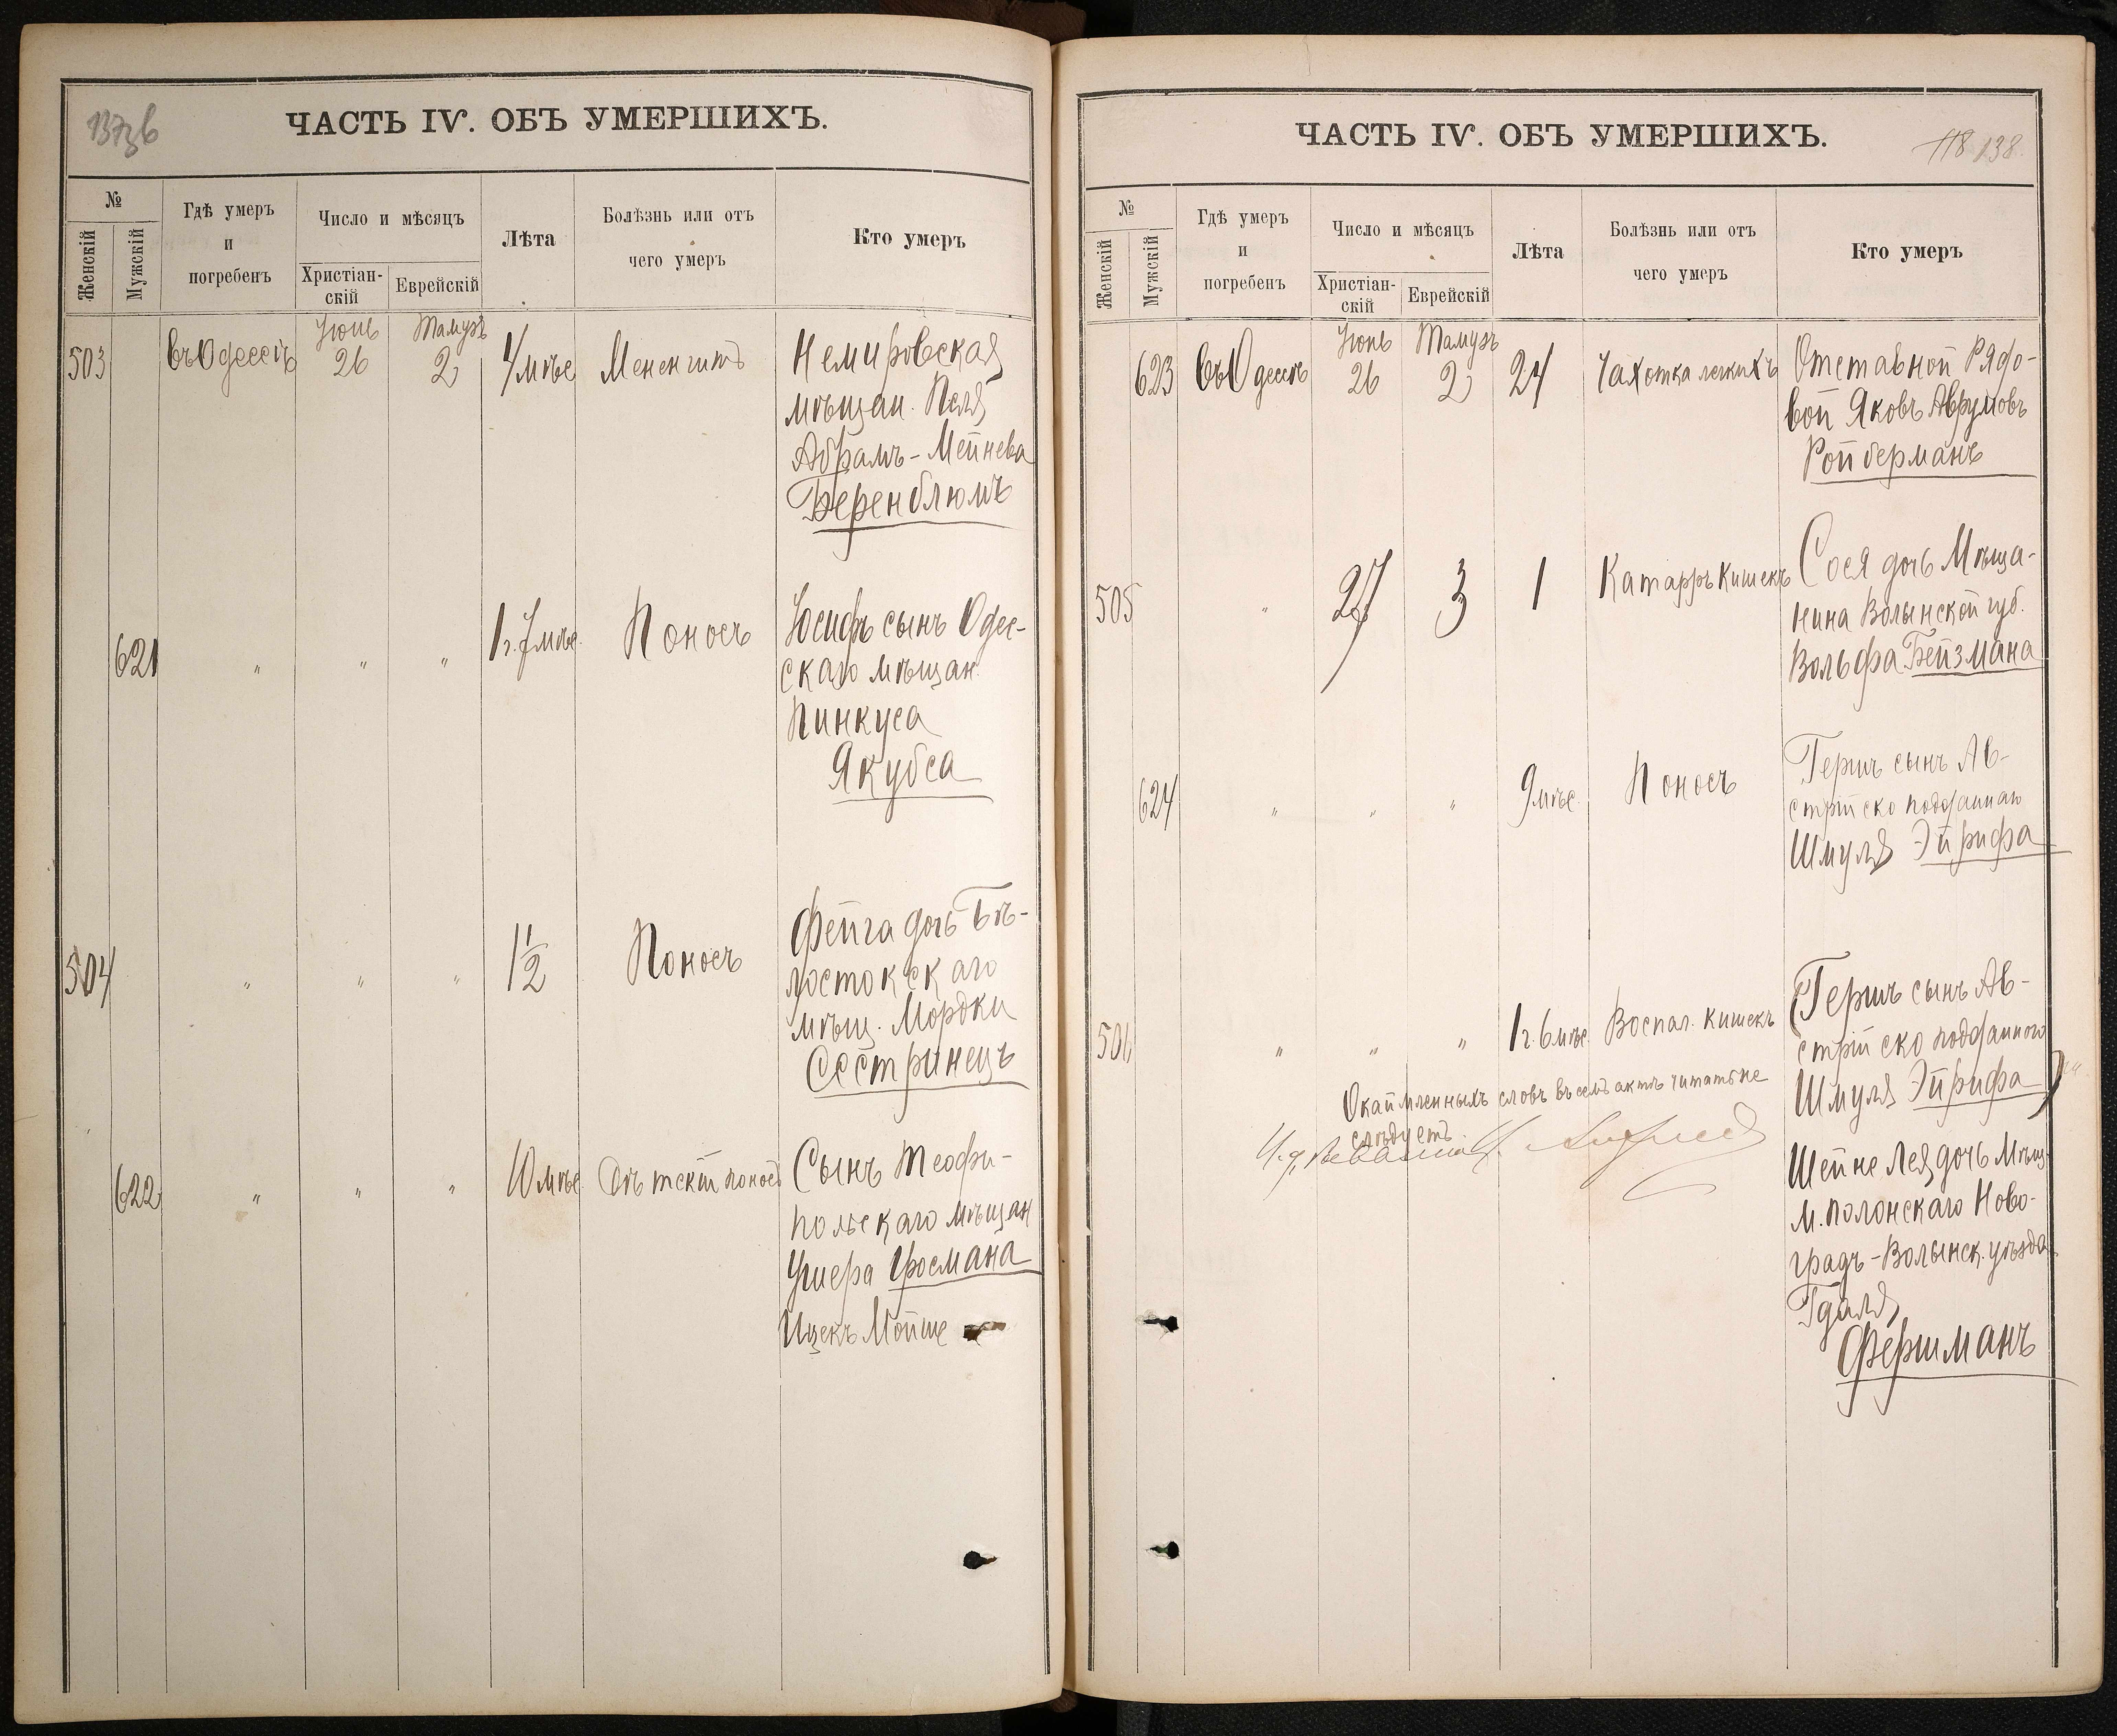 137об
ЧАСТЬ IV. ОБЪ УМЕРШИХЪ.
№
Женскій
Мужскій
Гдѣ умеръ
и
погребенъ
Число и мѣсяцъ
Христіан-
скій
Еврейскій
Лѣта
Болѣзнь или отъ
чего умеръ
Кто умеръ
503 въ Одессѣ Іюнь 26 Тамузъ 2 4 мѣс Мененгитъ Немировская
мѣщан. Песя
Абрамъ-Мейнева
Беренблюмъ
621 " " " 1 г. 7 мѣс. Поносъ Іосифъ сынъ Одес-
скаго мѣщан.
Пинкуса
Якубса
504 " " " 1 1/2 Поносъ Фейга дочь Бѣ-
лостокскаго
мѣщ. Мордки
Сестринецъ
622 " " " 10 мѣс Дѣтскій поносъ Сынъ Теофи-
польскаго мѣщан
Гросмана
Ицекъ Мойше
ЧАСТЬ IV. ОБЪ УМЕРШИХЪ.
118 138.
№
Женскій
Мужскій
Гдѣ умеръ
и
погребенъ
Число и мѣсяцъ
Христіан-
скій
Еврейскій
Лѣта
Болѣзнь или отъ
чего умеръ
Кто умеръ
623 въ Одессѣ Іюнь 26 Тамузъ 2 24 Чахотка легкихъ Отставной Рядо-
вой Яковъ Аврумовъ
Ройберманъ
505 " 27 3 1 Катарръ кишекъ Сося дочь Мѣща-
нина Волынской губ.
Вольфа Бейзмана
624 " " " 9 мѣс. Поносъ Гершъ сынъ Ав-
стрійско подданнаго
Шмуля Эйрифа
506 " " " 1 г. 6 мѣс. Воспал. кишекъ (Гершъ сынъ Ав-
стрійско подданного
Шмуля Эйрифа)
Окаймленныхъ словъ въ семъ актѣ читать не
слѣдуетъ
Шейне Лея дочь Мѣщ.
м. Полонскаго Ново-
градъ-Волынск. уѣзда
Гдаля
Фершманъ